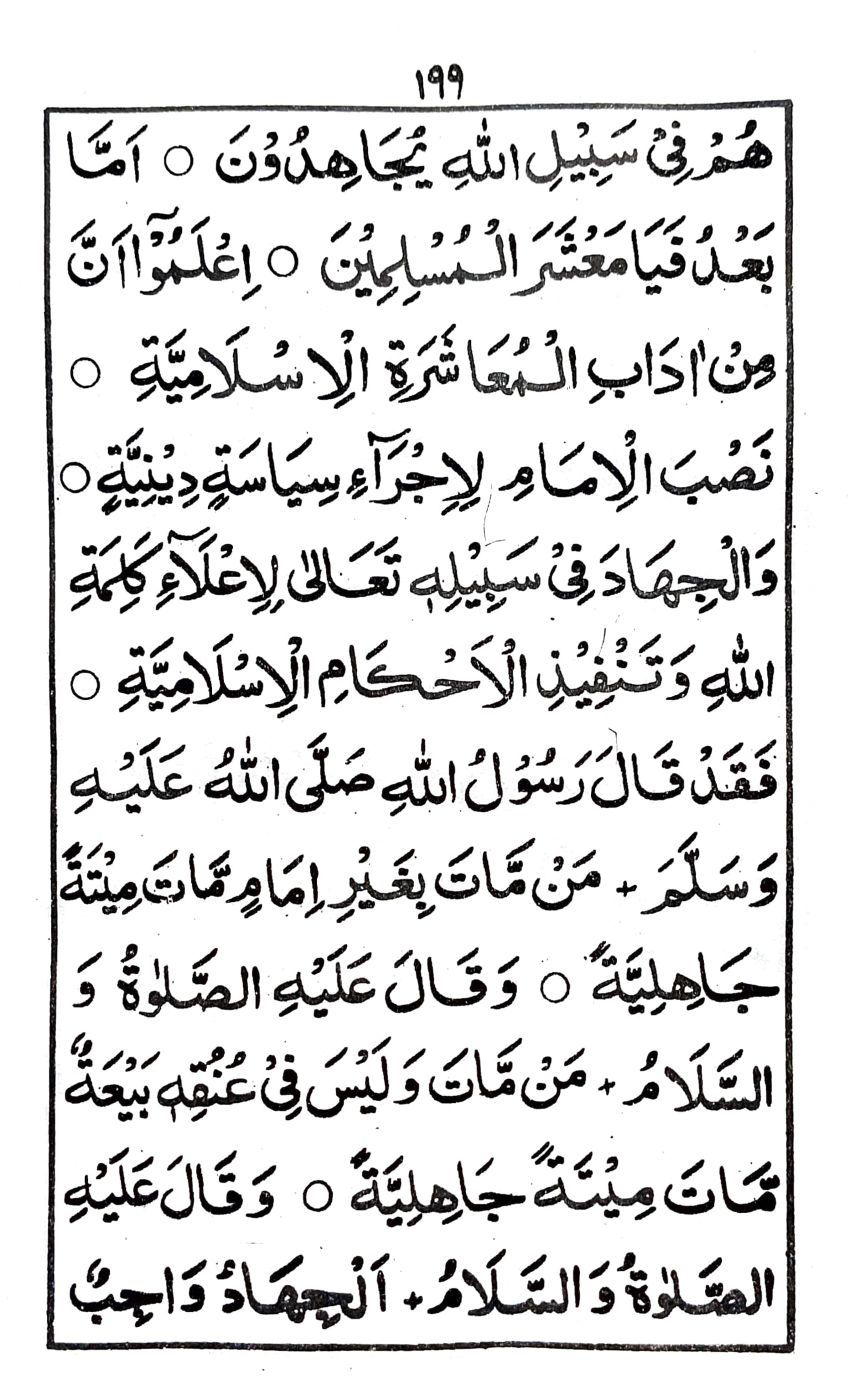 ١٩٩
هُمْ فِیْ سَبِیْلِ اللّٰهِ یُجَاهِدُوْنَ ○ اَمَّا
بَعْدُ فَیَا مَعْشَرَ الْمُسْلِمِیْنَ ○ اِعْلَمُوْٓا اَنَّ
مِنْ اٰدَابِ الْمُعَاشَرَةِ الْاِسْلَامِیَّةِ ○
نَصْبَ الْاِمَامِ لِاِجْرَآءِ سِیَاسَةٍ دِیْنِیَّةٍ ○
وَالْجِهَادَ فِیْ سَبِیْلِهٖ تَعَالٰی لِاِعْلَآءِ کَلِمَةِ
اللّٰهِ وَتَنْفِیْذِ الْاَحْکَامِ الْاِسْلَامِیَّةِ ○
فَقَدْ قَالَ رَسُوْلُ اللّٰهِ صَلَّی اللّٰهُ عَلَیْهِ
وَسَلَّمَ + مَنْ مَّاتَ بِغَیْرِ اِمَامٍ مَّاتَ مِیْتَةً
جَاهِلِیَّةً ○ وَقَالَ عَلَیْهِ الصَّلٰوةُ وَ
السَّلَامُ + مَنْ مَّاتَ وَلَیْسَ فِیْ عُنُقِهٖ بَیْعَةٌ
مَّاتَ مِیْتَةً جَاهِلِیَّةً ○ وَقَالَ عَلَیْهِ
الصَّلٰوةُ وَالسَّلَامُ + اَلْجِهَادُ وَاجِبٌ